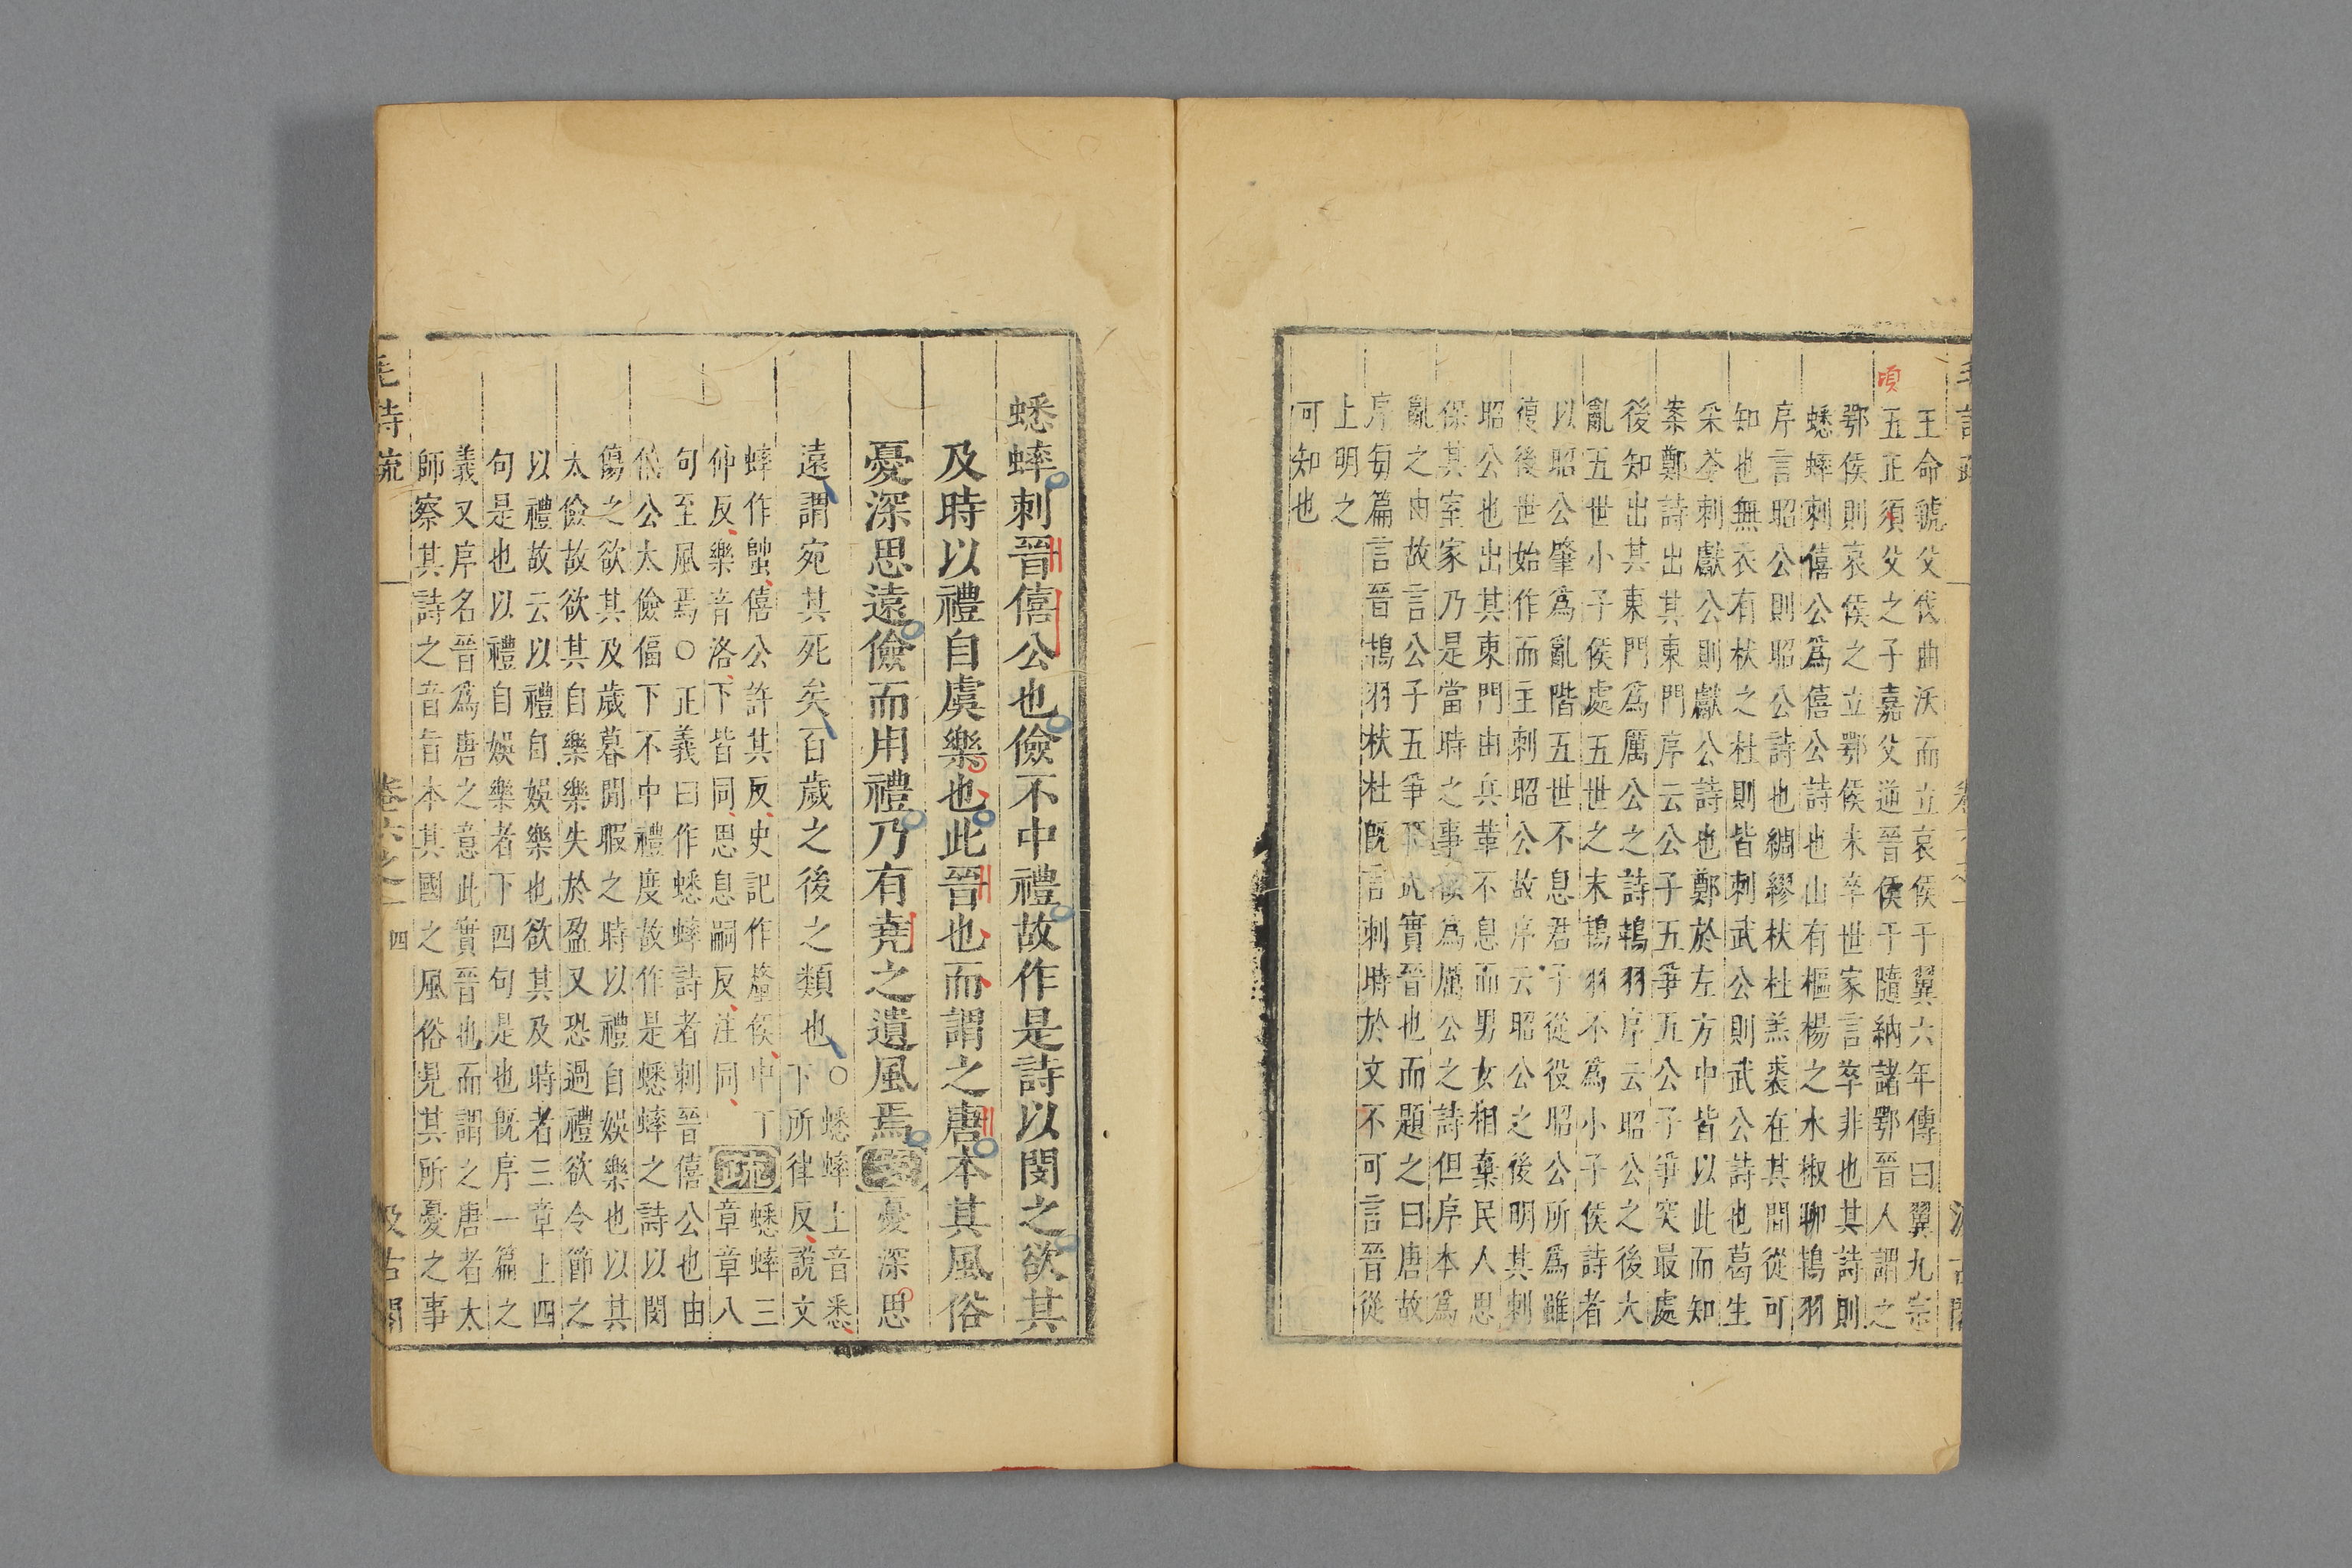 王命虢父伐曲沃而立哀侯于翼六年傳曰翼九宗
五正須父之子嘉父逆晉侯于隨納諸鄂晉人謂之
頃
鄂侯則哀侯之立鄂侯未卒世家言卒非也其詩則
蟋蟀刺僖公爲僖公詩也山有樞楊之水椒聊鴇羽
序言昭公則昭公詩也綢繆杕杜羔裘在其間從可
知也無衣有杕之杜則皆刺武公則武公詩也葛生
采苓刺獻公則獻公詩也鄭於左方中皆以此而知
案鄭詩出其東門序云公子五爭五公子爭突最處
後知出其東門爲厲公之詩鴇羽序云昭公之後大
亂五世小子侯處五世之末鴇羽不爲小子侯詩者
以昭公肇爲亂階五世不息君子從役昭公所爲雖
復後世始作而主刺昭公故序云昭公之後明其刺
昭公也出其東門由兵革不息而男女相棄民人思
保其室家乃是當時之事故爲厲公之詩但序本爲
亂之由故言公子五爭耳此實晉也而題之曰唐故
序每篇言晉鴇羽杕杜旣言刺時於文不可言晉從
上明之
可知也
蟋蟀刺晉僖公也儉不中禮故作是詩以閔之欲其
及時以禮自虞樂也此晉也而謂之唐本其風俗
憂深思遠儉而用禮乃有堯之遺風焉
憂深思
遠謂宛其死矣百歲之後之類也○
蟋蟀上音悉
下所律反說文
蟀作𧍓僖公許其反史記作釐侯中丁
仲反樂音洛下皆同思息嗣反注同
疏
蟋蟀三
章章八
句至風焉○正義曰作蟋蟀詩者刺晉僖公也由
僖公太儉偪下不中禮度故作是蟋蟀之詩以閔
傷之欲其及歲暮閒暇之時以禮自娛樂也以其
太儉故欲其自樂樂失於盈又恐過禮欲令節之
以禮故云以禮自娛樂也欲其及時者三章上四
句是也以禮自娛樂者下四句是也旣序一篇之
義又序名晉爲唐之意此實晉也而謂之唐者太
師察其詩之音旨本其國之風俗見其所憂之事
毛詩疏
卷六之一
四
汲古閣